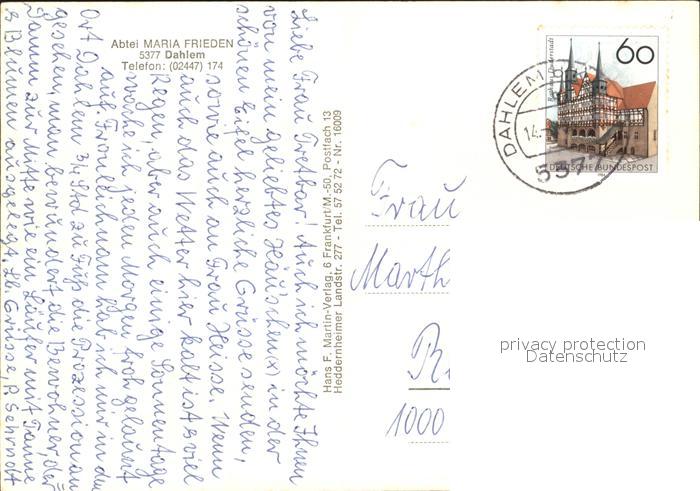 Abtei MARIA FRIEDEN
5377 Dahlem
Telefon: (02447) 174
Liebe Frau Tretbar! Auch ich möchte Ihnen
von mein geliebtes Häuschen in der
schönen Eifel herzliche Grüsse senden,
sowie auch an Frau Heisse. Wenn
auch das Wetter hier kalt ist & viel
Regen, aber auch einige Sonnentage
wo ich jeden Morgen froh gelaunt
auf. Fronleichnam hab ich mir in dem
Ort Dahlem 3/4 Std zu Fuß die Prozession an
gesehen, man bewundert die Bewohner, der
Damm zur Mitte wie ein Läufer mit Tanne
& Blumen ausgelegt. Lb. Grüsse,
Hans F. Martin-Verlag, 6 Frankfurt/M.-50, Postfach 13
Heddernheimer Landstr. 277 - Tel. 57 52 72 - Nr. 16009
60
Rathaus Duderstadt
DEUTSCHE BUNDESPOST
DAHLEM
14.
537
Frau
Marth
R
1000
privacy protection
Datenschutz